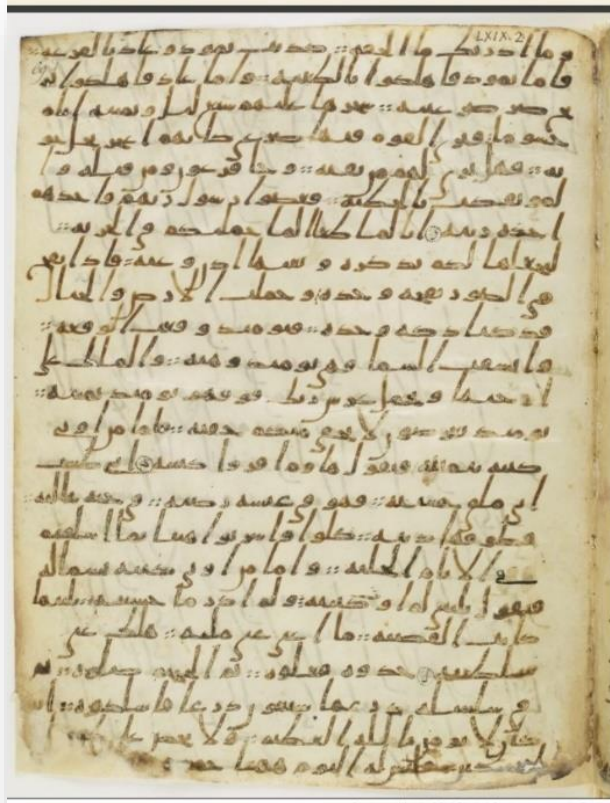 LXIX.2
و ما ادريك ما الحقه :: كذبت ثمود و عاد بالقرعه ::
فاما ثمود فاهلكوا بالطغيه :: واما عاد فاهلكوا بر
يح صر صر عتيه :: سخرها عليهم سبع ليل و ثمنيه ايام
حسوما فترى القوم فيها صرعى كانهم اعجز نخل خو
يه :: فهل ترى لهم من بقيه :: و جا فرعون و من قبله و ا
لموتفكت بالخطيه :: فعصوا رسول ربهم فاخذهم
اخذه ربيه انا لما طغا الما حملنكم في الجريه ::
لنجعلها لكم تذكره و تعيها اذن و عيه :: فاذا نفخ
في الصور نفخه و حده و حملت الارض و الجبال
فدكتا دكه و حده :: فيومئذ و قعت الوقعه ::
وانشقت السما فهي يومئذ و هيه :: والملك على
ارجيها و يحمل عرش ربك فوقهم يومئذ ثمنيه ::
يومئذ تعرضون لا تخفى منكم خفيه :: فاما من اوتي
كتبه بيمينه فيقول هاوم اقروا كتبيه اني ظننت
اني ملق حسبيه :: فهو في عيشه رضيه :: في جنه عاليه ::
قطوفها دنيه :: كلوا واشربوا هنيا بما اسلفتم
في الايام الخليه :: و اما من اوتي كتبه بشماله
فيقول يليتني لم اوت كتبيه :: و لم ادر ما حسبيه :: يليتها
كانت القضيه :: ما اغنى عني ماليه :: هلك عني
سلطنيه خذوه فغلوه :: ثم الجحيم صلوه :: ثم
في سلسله ذرعها سبعون ذرعا فاسلكوه :: انه
كان لا يومن بالله العظيم :: و لا يحض على
فليس له اليوم ههنا حميم